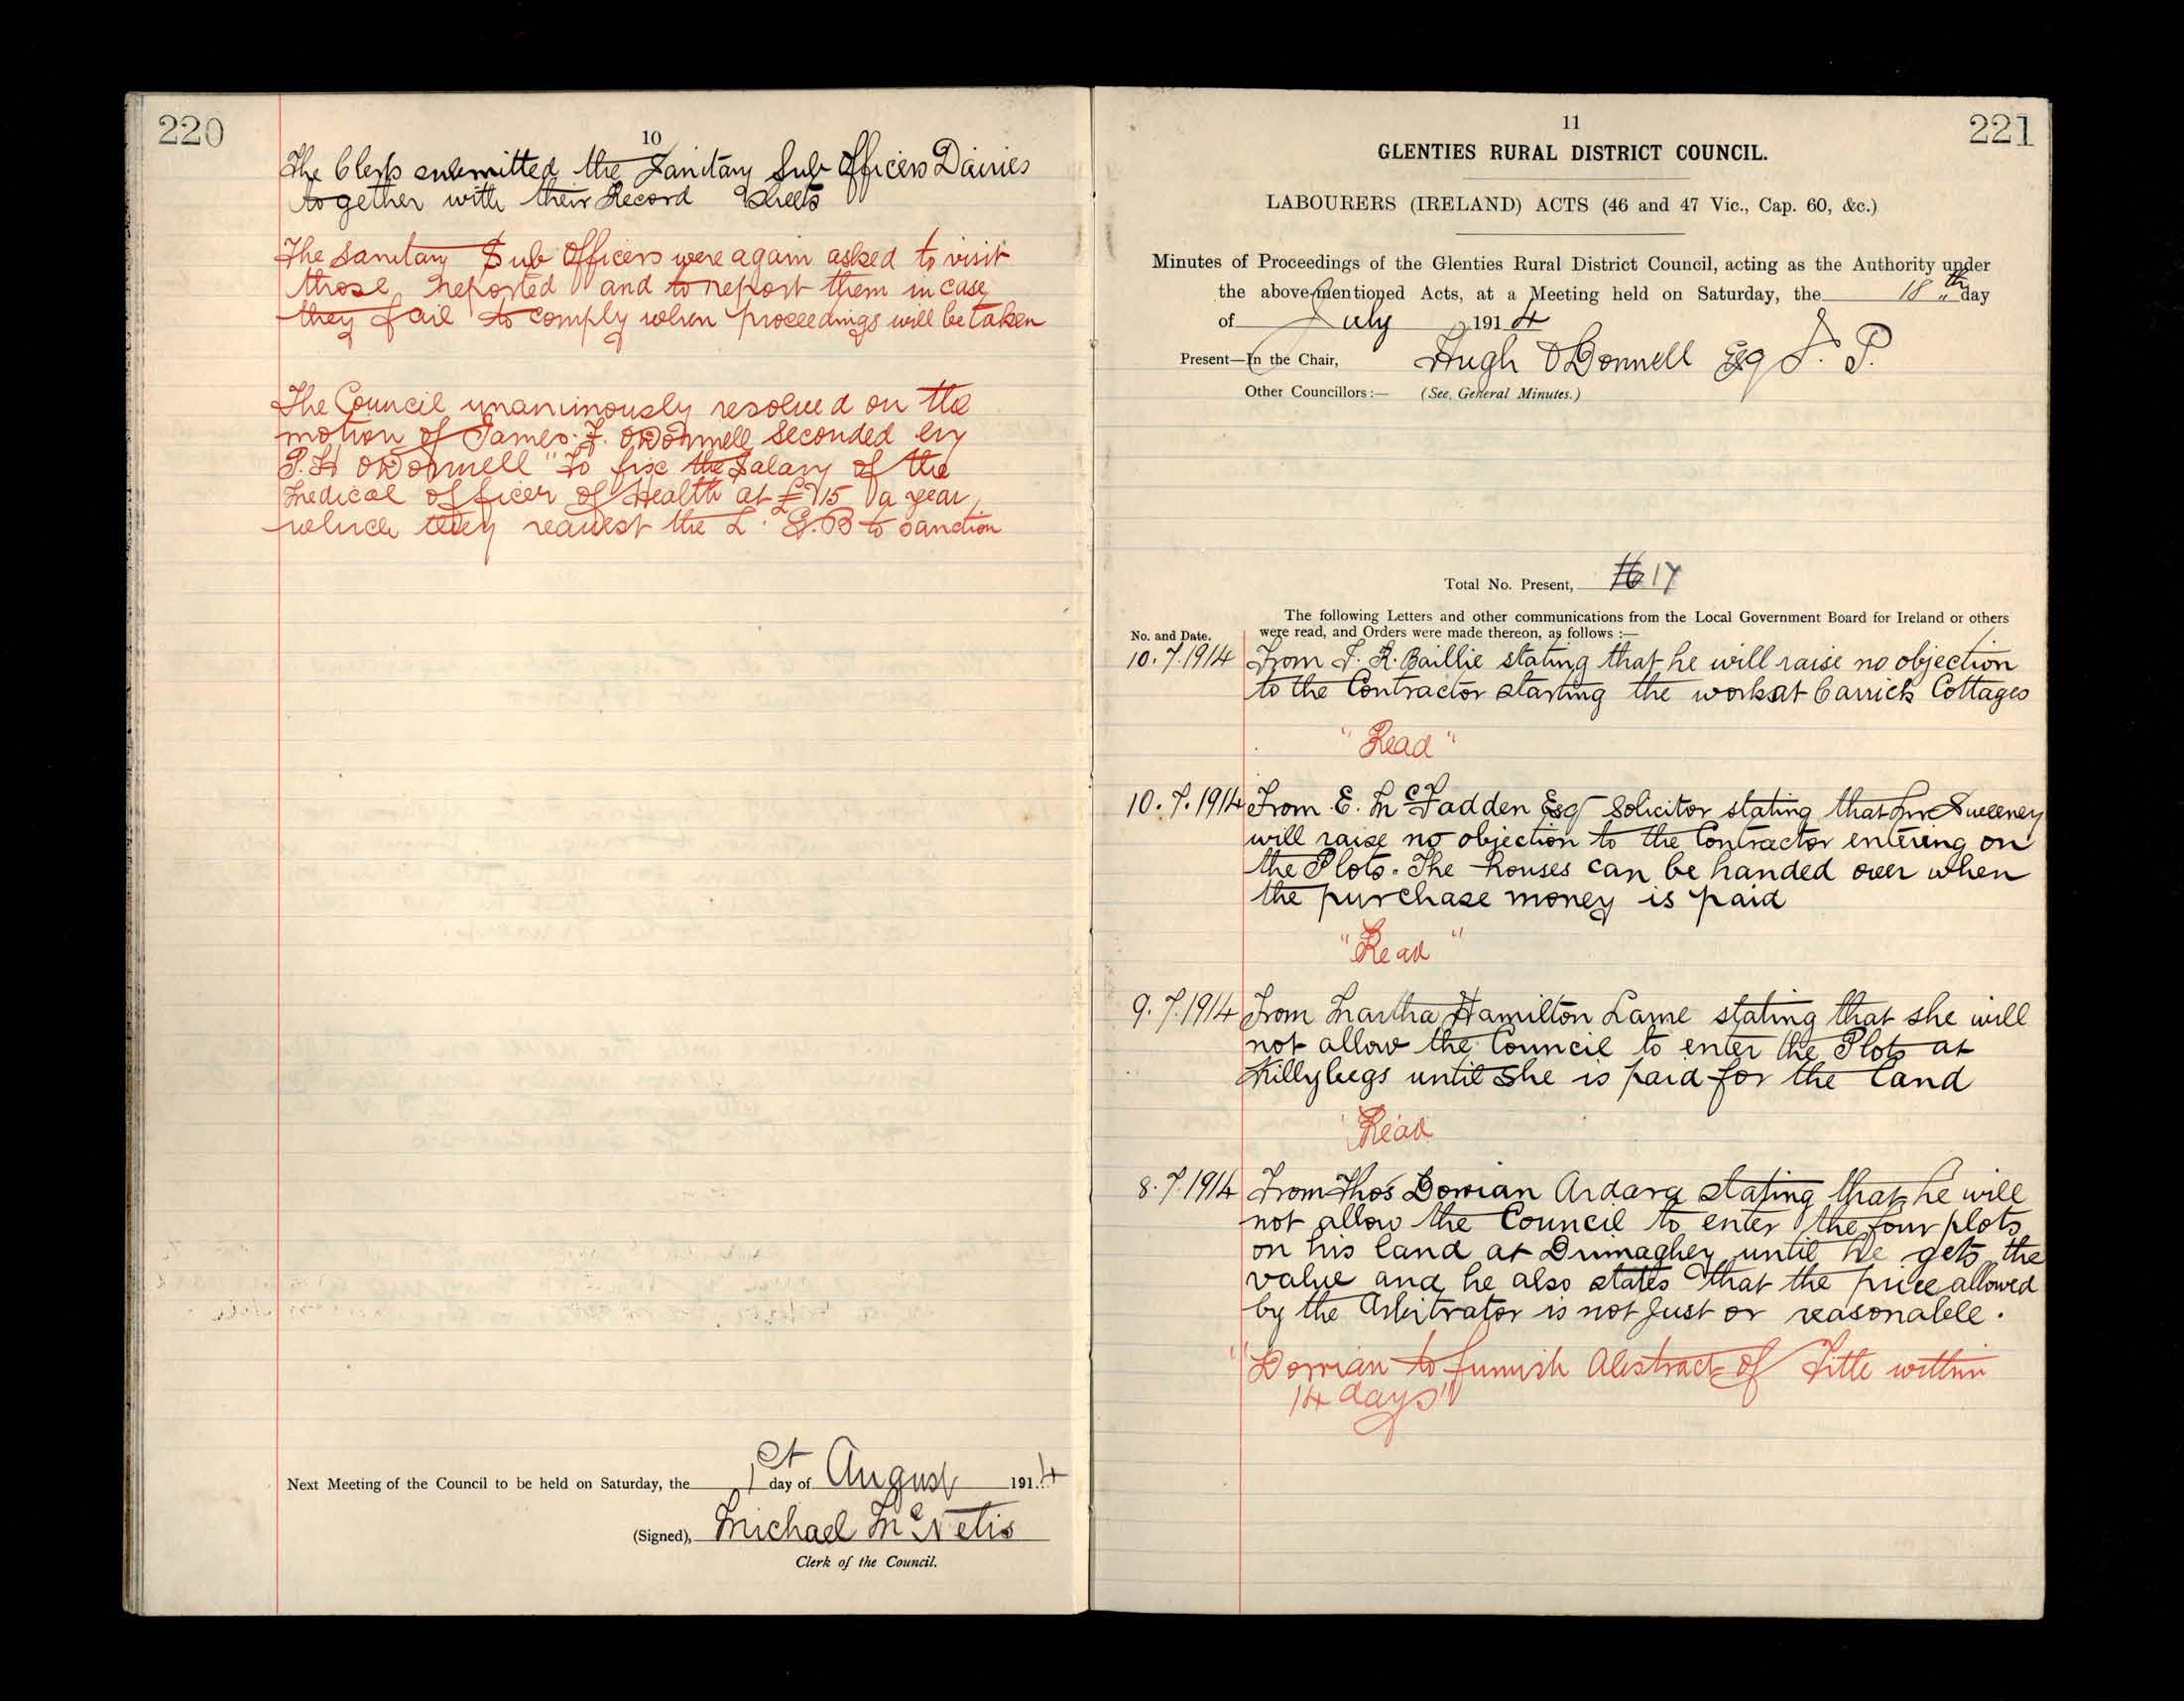 220
10
The Clerk submitted the Sanitary Sub Officers Dairies
together with their Record Sheets
The Sanitary Sub Officers were again asked to visit
those reported and to report them in case
they fail to comply when proceedings will be taken
The Council unanimously resolved on the
motion of James F. O'Donnell Seconded by
P. H O'Donnell "To fix the Salary of the
Medical officer of Health at £15 a year
which they request the L. G. B to sanction
Next Meeting of the Council to be held on Saturday, the 1st day of August 1914
(Signed), Michael McNelis
Clerk of the Council.
11
221
GLENTIES RURAL DISTRICT COUNCIL.
LABOURERS (IRELAND) ACTS (46 and 47 Vic., Cap. 60, &c.)
Minutes of Proceedings of the Glenties Rural District Council, acting as the Authority under
the above-mentioned Acts, at a Meeting held on Saturday, the 18th day
of July 1914
Present—In the Chair, Hugh O'Donnell Esq J. P.
Other Councillors:— (See General Minutes.)
Total No. Present, 16 17
The following Letters and other communications from the Local Government Board for Ireland or others
No. and Date. were read, and Orders were made thereon, as follows :—
10.7.1914 From J. R. Baillie stating that he will raise no objection
to the Contractor starting the work at Carrick Cottages
"Read"
10.7.1914 From E. McFadden Esq Solicitor stating that Mr Sweeney
will raise no objection to the Contractor entering on
the Plots. The houses can be handed over when
the purchase money is paid
"Read"
9.7.1914 From Martha Hamilton Larne stating that she will
not allow the Council to enter the Plots at
Killybegs until she is paid for the land
"Read
8.7.1914 From Thos Dorrian Ardara stating that he will
not allow the Council to enter the four plots
on his land at Drimaghey until he gets the
value and he also states that the price allowed
by the Arbitrator is not Just or reasonable.
"Dorrian to furnish Abstract of Title within
14 days"